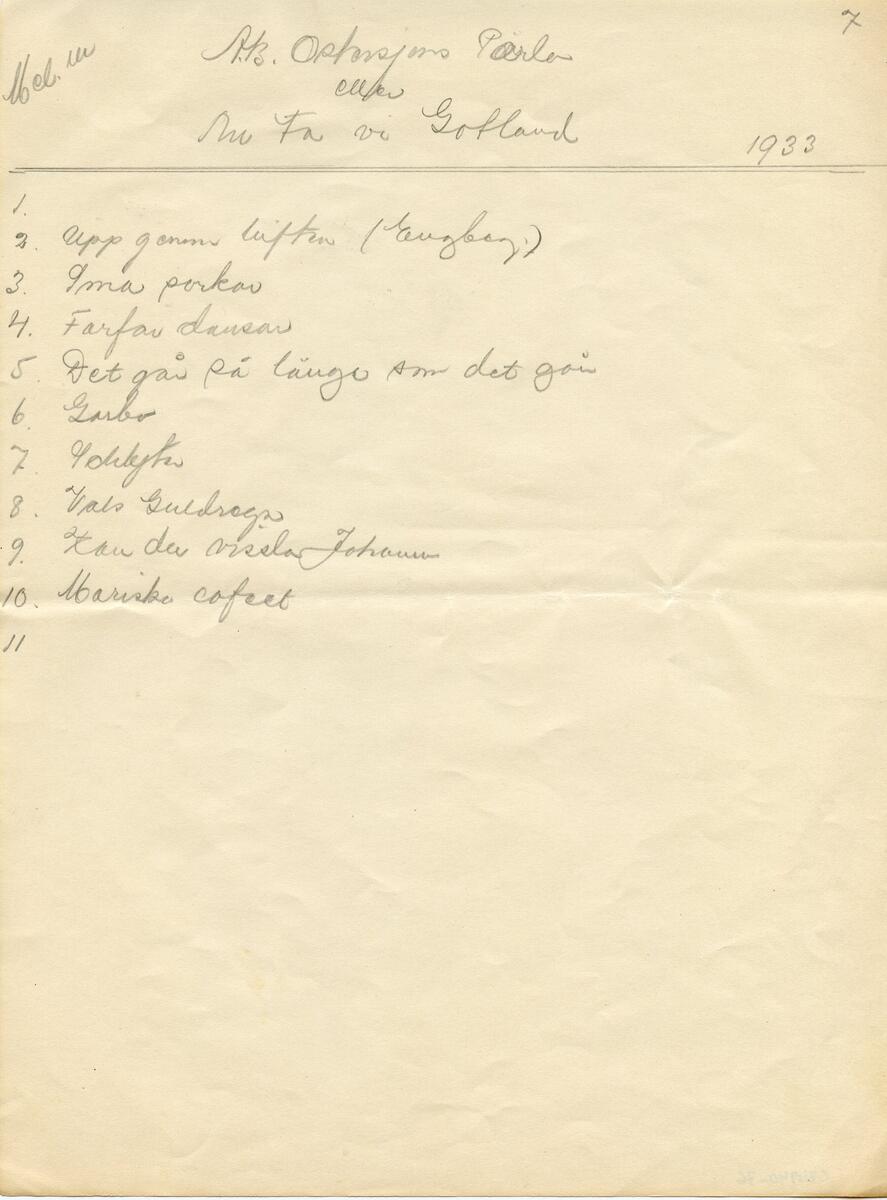 7
Mel. nr
A.B. Östersjöns Pärla
eller
Nu Ta vi Gotland
1933
1.
2. Upp genom luften (Engberg.)
3. Små pojkar
4. Farfar dansar
5. Det går så länge som det går
6. Garbo
7.
8. Vals Guldregn
9. Kan du vissla Johanna
10. Mariska cafeet
11